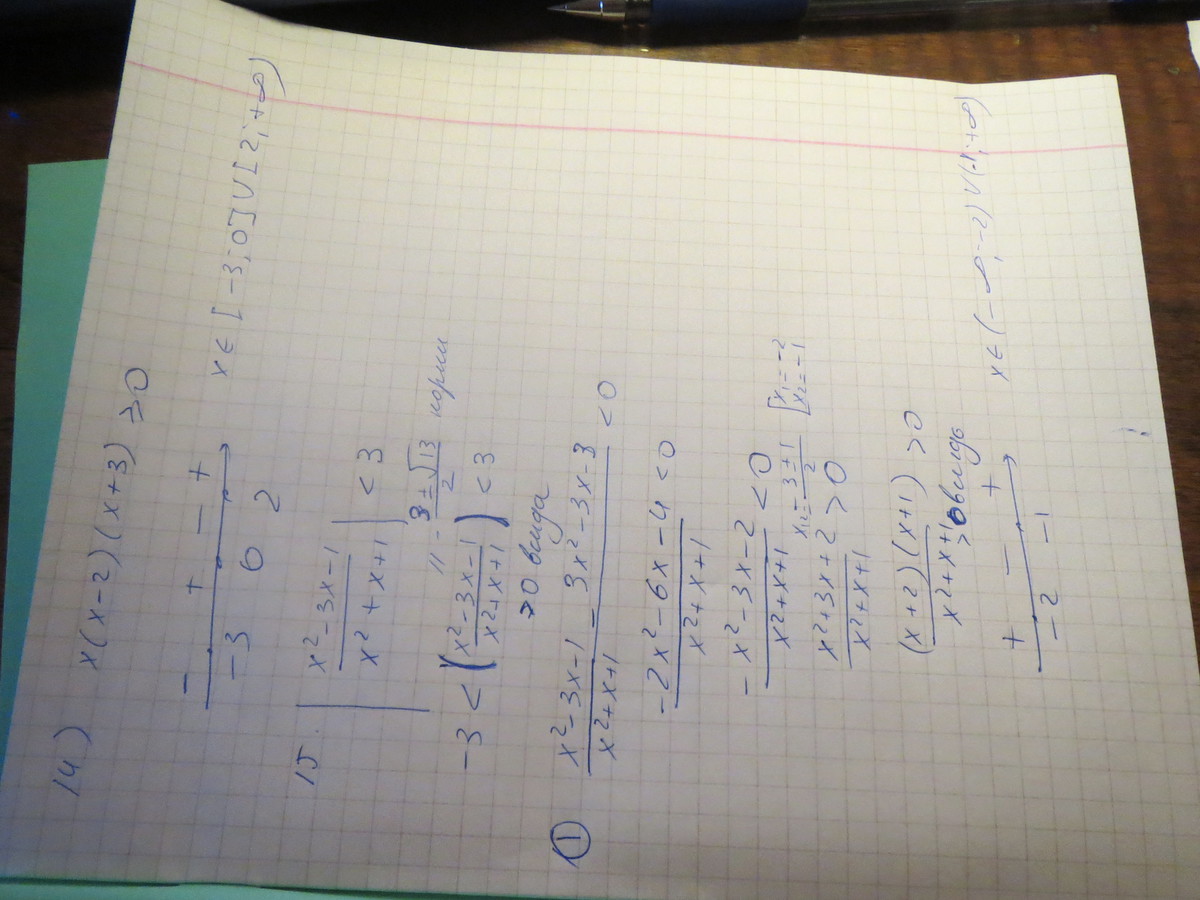 14) x(x-2)(x+3) ≥0
- + - +
-3 0 2
x ∈ [-3;0]∪[2;+∞)
15. | (x²-3x-1)/(x²+x+1) | < 3
-3 < ( (x²-3x-1)/(x²+x+1) ) < 3
" - (3±√13)/2 корни
>0 всегда
① (x²-3x-1)/(x²+x+1) - (3x²-3x-3) < 0
(-2x²-6x-4)/(x²+x+1) < 0
(-x²-3x-2)/(x²+x+1) < 0
x₁,₂ = (-3±1)/2 [x₁=-2 x₂=-1
(x²+3x+2)/(x²+x+1) > 0
((x+2)(x+1))/(x²+x+1) > 0
>0 всегда
+ - +
-2 -1
x ∈ (-∞;-2)∪(-1;+∞)